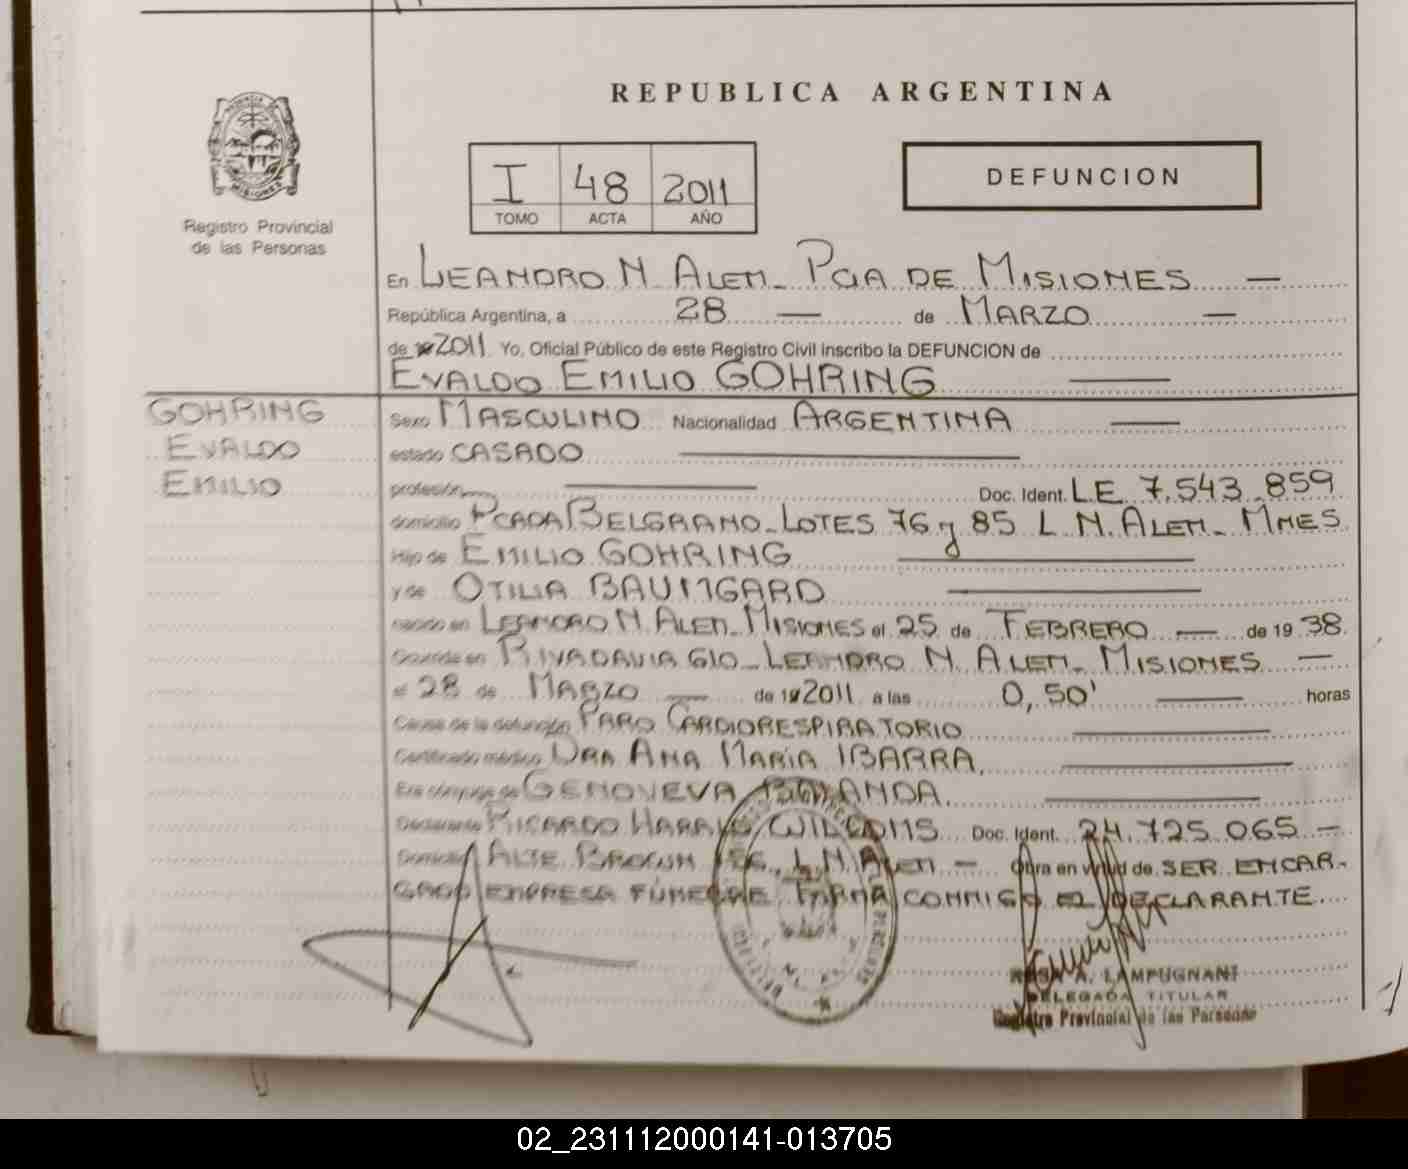 REPUBLICA ARGENTINA
I 48 2011
TOMO ACTA AÑO
DEFUNCION
PROVINCIA DE
MISIONES
Registro Provincial
de las Personas
En LEANDRO N. ALEM - PCIA DE MISIONES —
República Argentina, a 28 — de MARZO —
de 19 2011 Yo, Oficial Público de este Registro Civil inscribo la DEFUNCION de
EVALDO EMILIO GOHRING —
GOHRING
EVALDO
EMILIO
Sexo MASCULINO Nacionalidad ARGENTINA —
estado CASADO —
profesión — Doc. Ident. LE 7.543.859
domicilio PCADA BELGRANO - LOTES 76 y 85 L N. ALEM - MNES
Hijo de EMILIO GOHRING —
y de OTILIA BAUMGARD —
nacido en LEANDRO N. ALEM - MISIONES el 25 de FEBRERO — de 19 38
Ocurrida en RIVADAVIA 610 - LEANDRO N. ALEM - MISIONES —
el 28 de MARZO — de 19 2011 a las 0,50' — horas
Causa de la defunción PARO CARDIORESPIRATORIO —
Certificado médico DRA ANA MARÍA IBARRA. —
Era cónyuge de GENOVEVA —
Declarante RICARDO Doc. Ident. 24.725.065 —
Domicilio ALTE BROWN L.N. ALEM — Obra en virtud de SER ENCAR-
GADO EMPRESA FÚNEBRE. FIRMA CONMIGO EL DECLARANTE.
ROSA A. LAMPUGNANI
DELEGADA TITULAR
Registro Provincial de las Personas
02_231112000141-013705